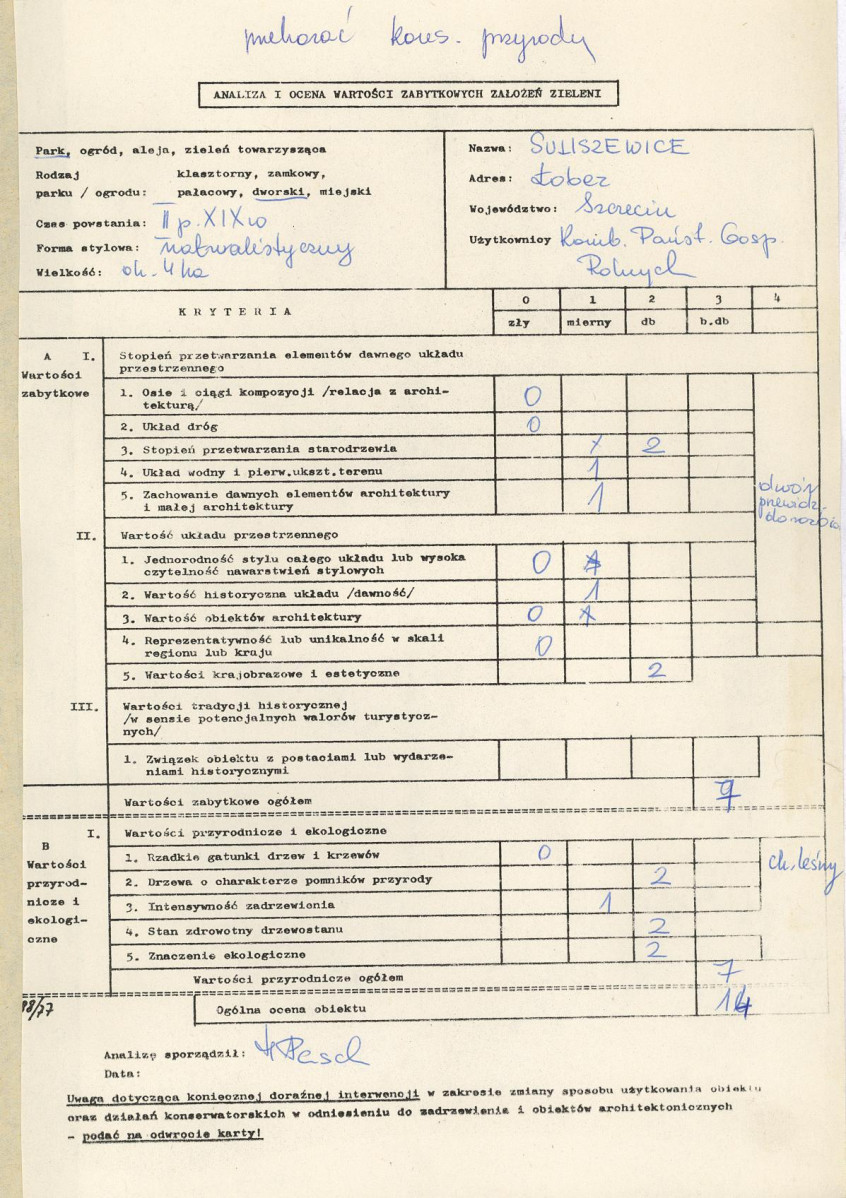 przekazać kons. przyrody
ANALIZA I OCENA WARTOŚCI ZABYTKOWYCH ZAŁOŻEŃ ZIELENI
Park, ogród, aleja, zieleń towarzysząca
Rodzaj klasztorny, zamkowy,
parku / ogrodu: pałacowy, dworski, miejski
Czas powstania: II p. XIX w
Forma stylowa: naturalistyczny
Wielkość: ok. 4 ha
Nazwa: SULISZEWICE
Adres: Łobez
Województwo: Szczecin
Użytkownicy Komb. Państ. Gosp.
Rolnych
KRYTERIA 0 1 2 3 4
zły mierny db b.db
A I. Stopień przetwarzania elementów dawnego układu
przestrzennego
Wartości
zabytkowe
1. Osie i ciągi kompozycji /relacja z archi-
tekturą/ 0
2. Układ dróg 0
3. Stopień przetwarzania starodrzewia 2
4. Układ wodny i pierw.ukszt.terenu 1
5. Zachowanie dawnych elementów architektury
i małej architektury 1
dwór
przewidz.
do rozbiór
II. Wartość układu przestrzennego
1. Jednorodność stylu całego układu lub wysoka
czytelność nawarstwień stylowych 0 1
2. Wartość historyczna układu /dawność/ 1
3. Wartość obiektów architektury 0 1
4. Reprezentatywność lub unikalność w skali
regionu lub kraju 0
5. Wartości krajobrazowe i estetyczne 2
III. Wartości tradycji historycznej
/w sensie potencjalnych walorów turystycz-
nych/
1. Związek obiektu z postaciami lub wydarze-
niami historycznymi
Wartości zabytkowe ogółem 7
B I. Wartości przyrodnicze i ekologiczne
Wartości
przyrod-
nicze i
ekologi-
czne
1. Rzadkie gatunki drzew i krzewów 0
2. Drzewa o charakterze pomników przyrody 2
3. Intensywność zadrzewienia 1
4. Stan zdrowotny drzewostanu 2
5. Znaczenie ekologiczne 2
ch. leśny
Wartości przyrodnicze ogółem 7
98/77
Ogólna ocena obiektu 14
Analizę sporządził:
Data:
Uwaga dotycząca koniecznej doraźnej interwencji w zakresie zmiany sposobu użytkowania obiektu
oraz działań konserwatorskich w odniesieniu do zadrzewienia i obiektów architektonicznych
- podać na odwrocie karty!